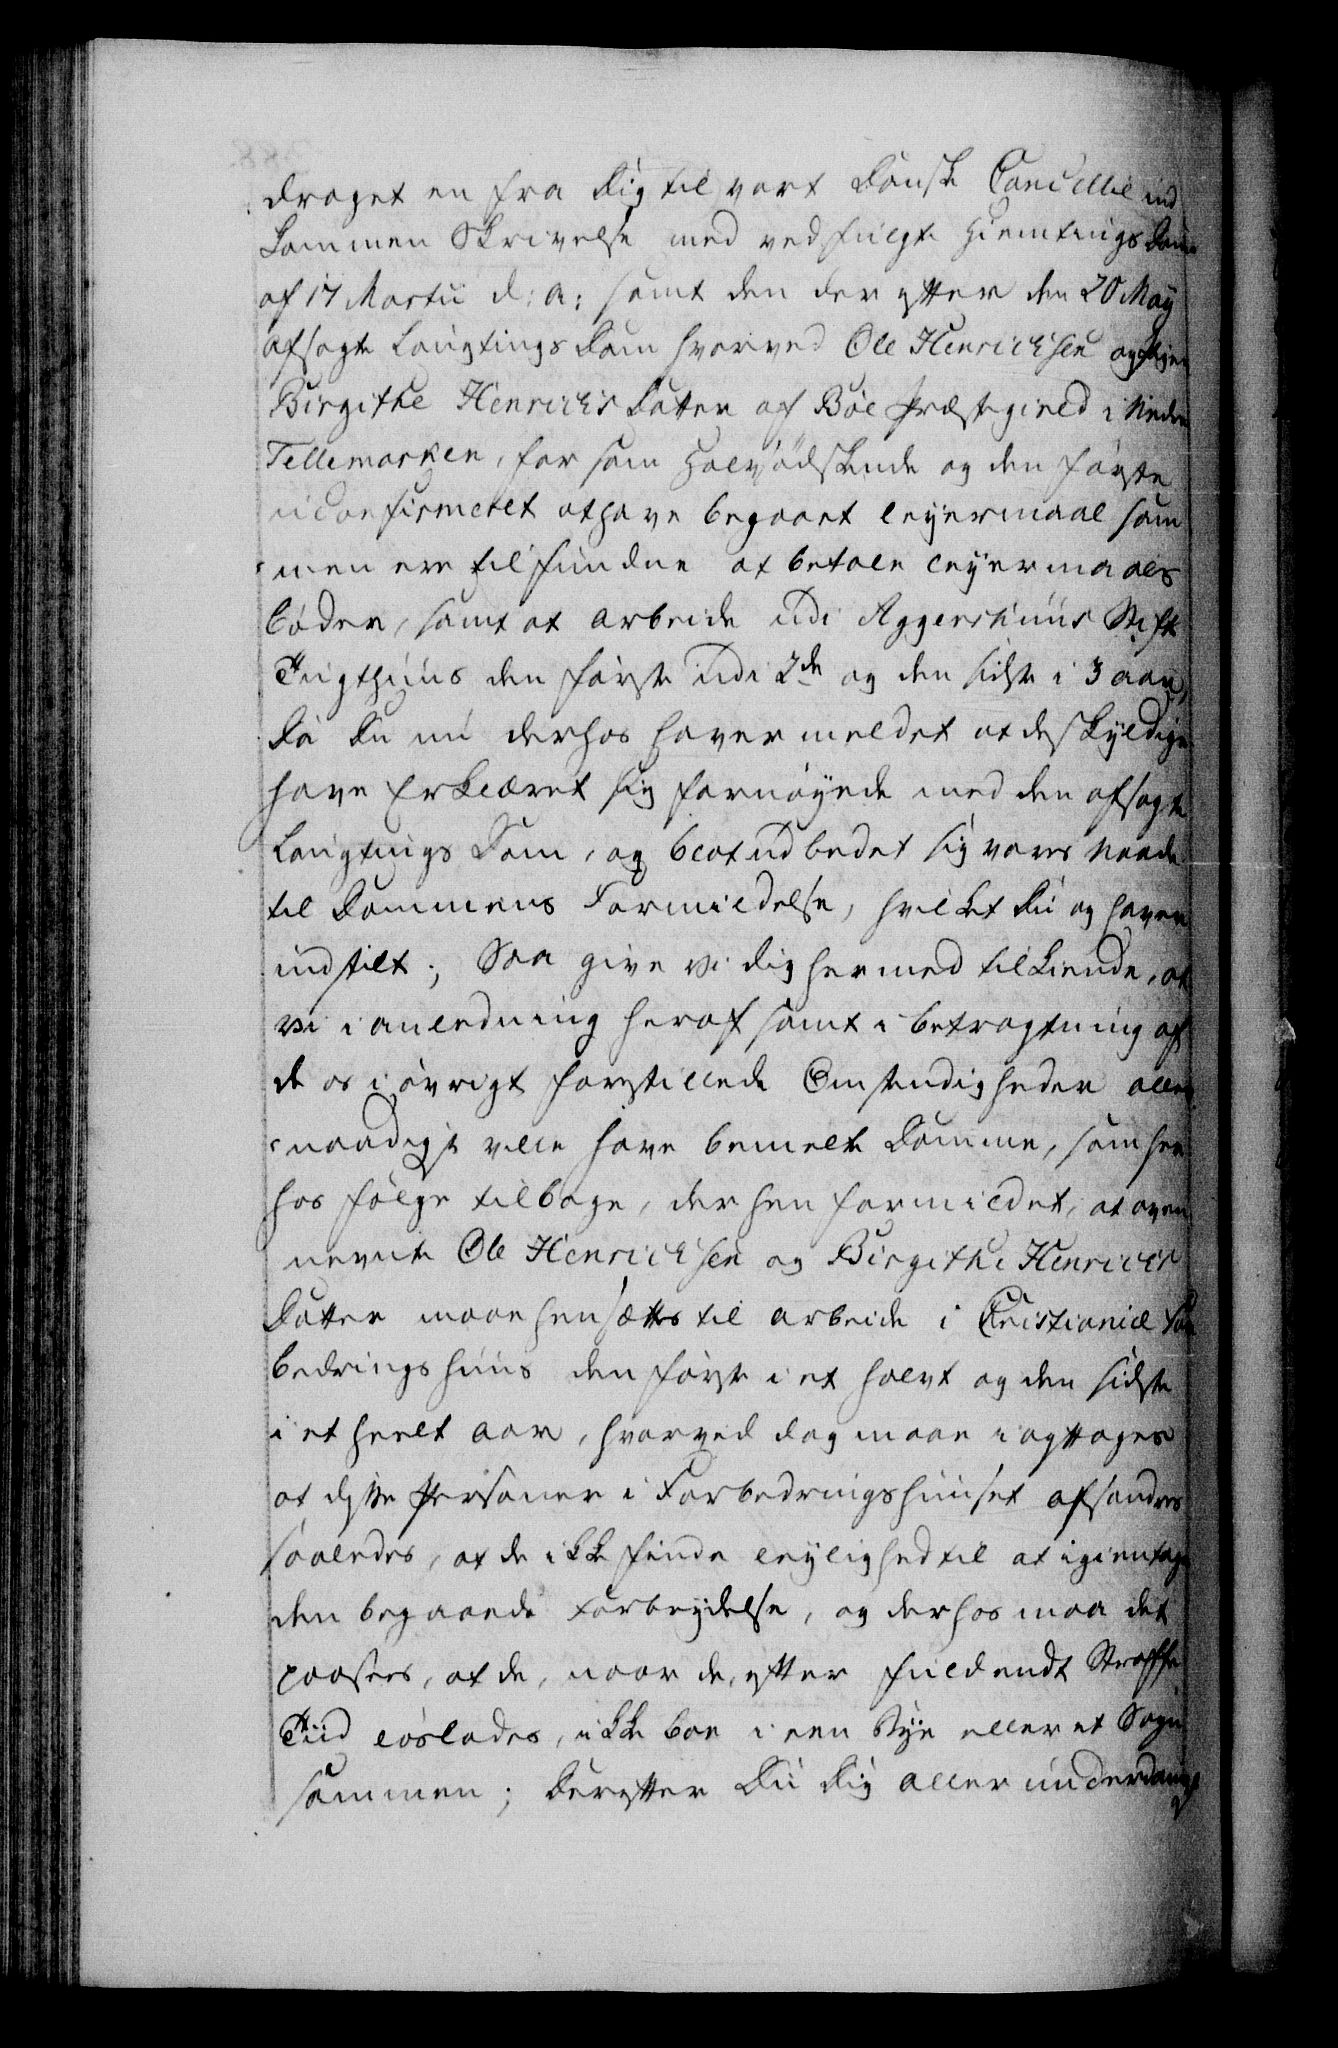 draget en fra Dig til vort Danske Cancellie ind
kommen Skrivelse med vedfulgt Hiemtings Dom
af 17 Martii d: a: samt den der efter den 20 May
afsagte Laugtings Dom hvorved Ole Henrichsen og
Birgithe Henrichs Datter af Bøe Præstegield i Nedre
Tellemarken, for som Halvsødskende og den første
uconfirmeret at have begaaet leyermaal sam
men ere tilfundne at betale leyermaals
bøder, samt at arbeide udi Aggershuus Stift
Tugthuus den første udi 2de og den sidste i 3 aar,
Da Du nu derhos haver meldet at de skyldige
have Erklæret sig fornøyede med den afsagte
Laugtings Dom, og blot udbedet sig vores Naade
til Dommens Formildelse, hvilket Du og haver
indstilt; Saa give vi Dig hermed tilkiende, at
vi i anledning heraf samt i betragtning af
de os i øvrigt forestillede Omstendigheder aller
naadigst ville have bemelte Domme, som her
hos følge tilbage, derhen formildet, at oven
nevnte Ole Henrichsen og Birgithe Henrichs
Datter maae hensættes til arbeide i Cristianiæ For
bedringshuus den første i et halvt og den sidste
i et heelt aar, hvorved dog maae iagttages
at disse Personer i Forbedringshuuset afsondres
saaledes, at de ikke finde leylighed til at igientage
den begaaede Forbrydelse, og derhos maa det
paasees, at de, naar de, efter fuldendt Straffe
Tiid løslades, ikke boe i een Bye eller et Sogn
sammen; Derefter Du Dig allerunderdanigst